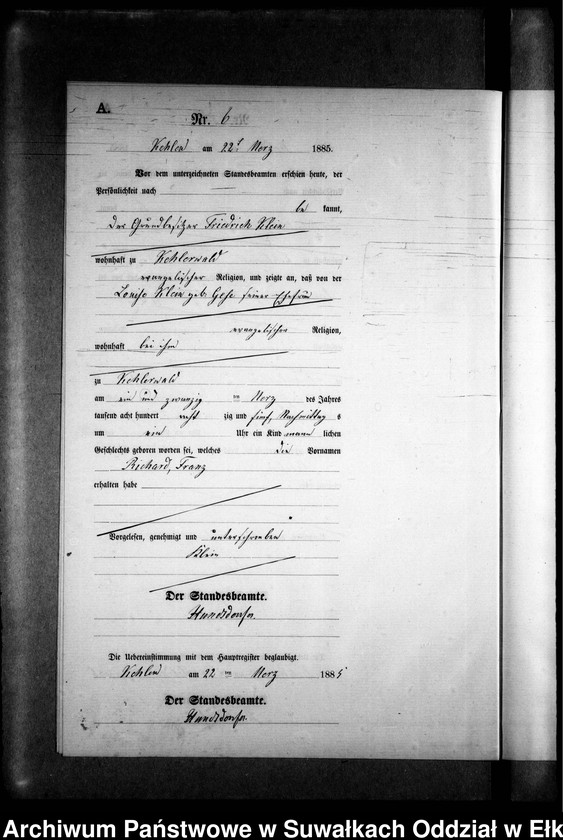 A.
Nr. 6
Kehlen am 22t März 1885.
Vor dem unterzeichneten Standesbeamten erschien heute, der
Persönlichkeit nach
be kannt,
der Grundbesitzer Friedrich Klein
wohnhaft zu Kehlerwald
evangelischer Religion, und zeigte an, daß von der
Louise Klein geb. seiner Ehefrau
evangelischer Religion,
wohnhaft bei ihm
zu Kehlerwald
am ein und zwanzig ten März des Jahres
tausend acht hundert acht zig und fünf, Nachmittag s
um ein Uhr ein Kind männ lichen
Geschlechts geboren worden sei, welches die Vornamen
Richard, Franz
erhalten habe
Vorgelesen, genehmigt und unterschrieben
Klein
Der Standesbeamte.
Die Uebereinstimmung mit dem Hauptregister beglaubigt.
Kehlen am 22 ten März 1885
Der Standesbeamte.
Archiwum Państwowe w Suwałkach Oddział w Ełk